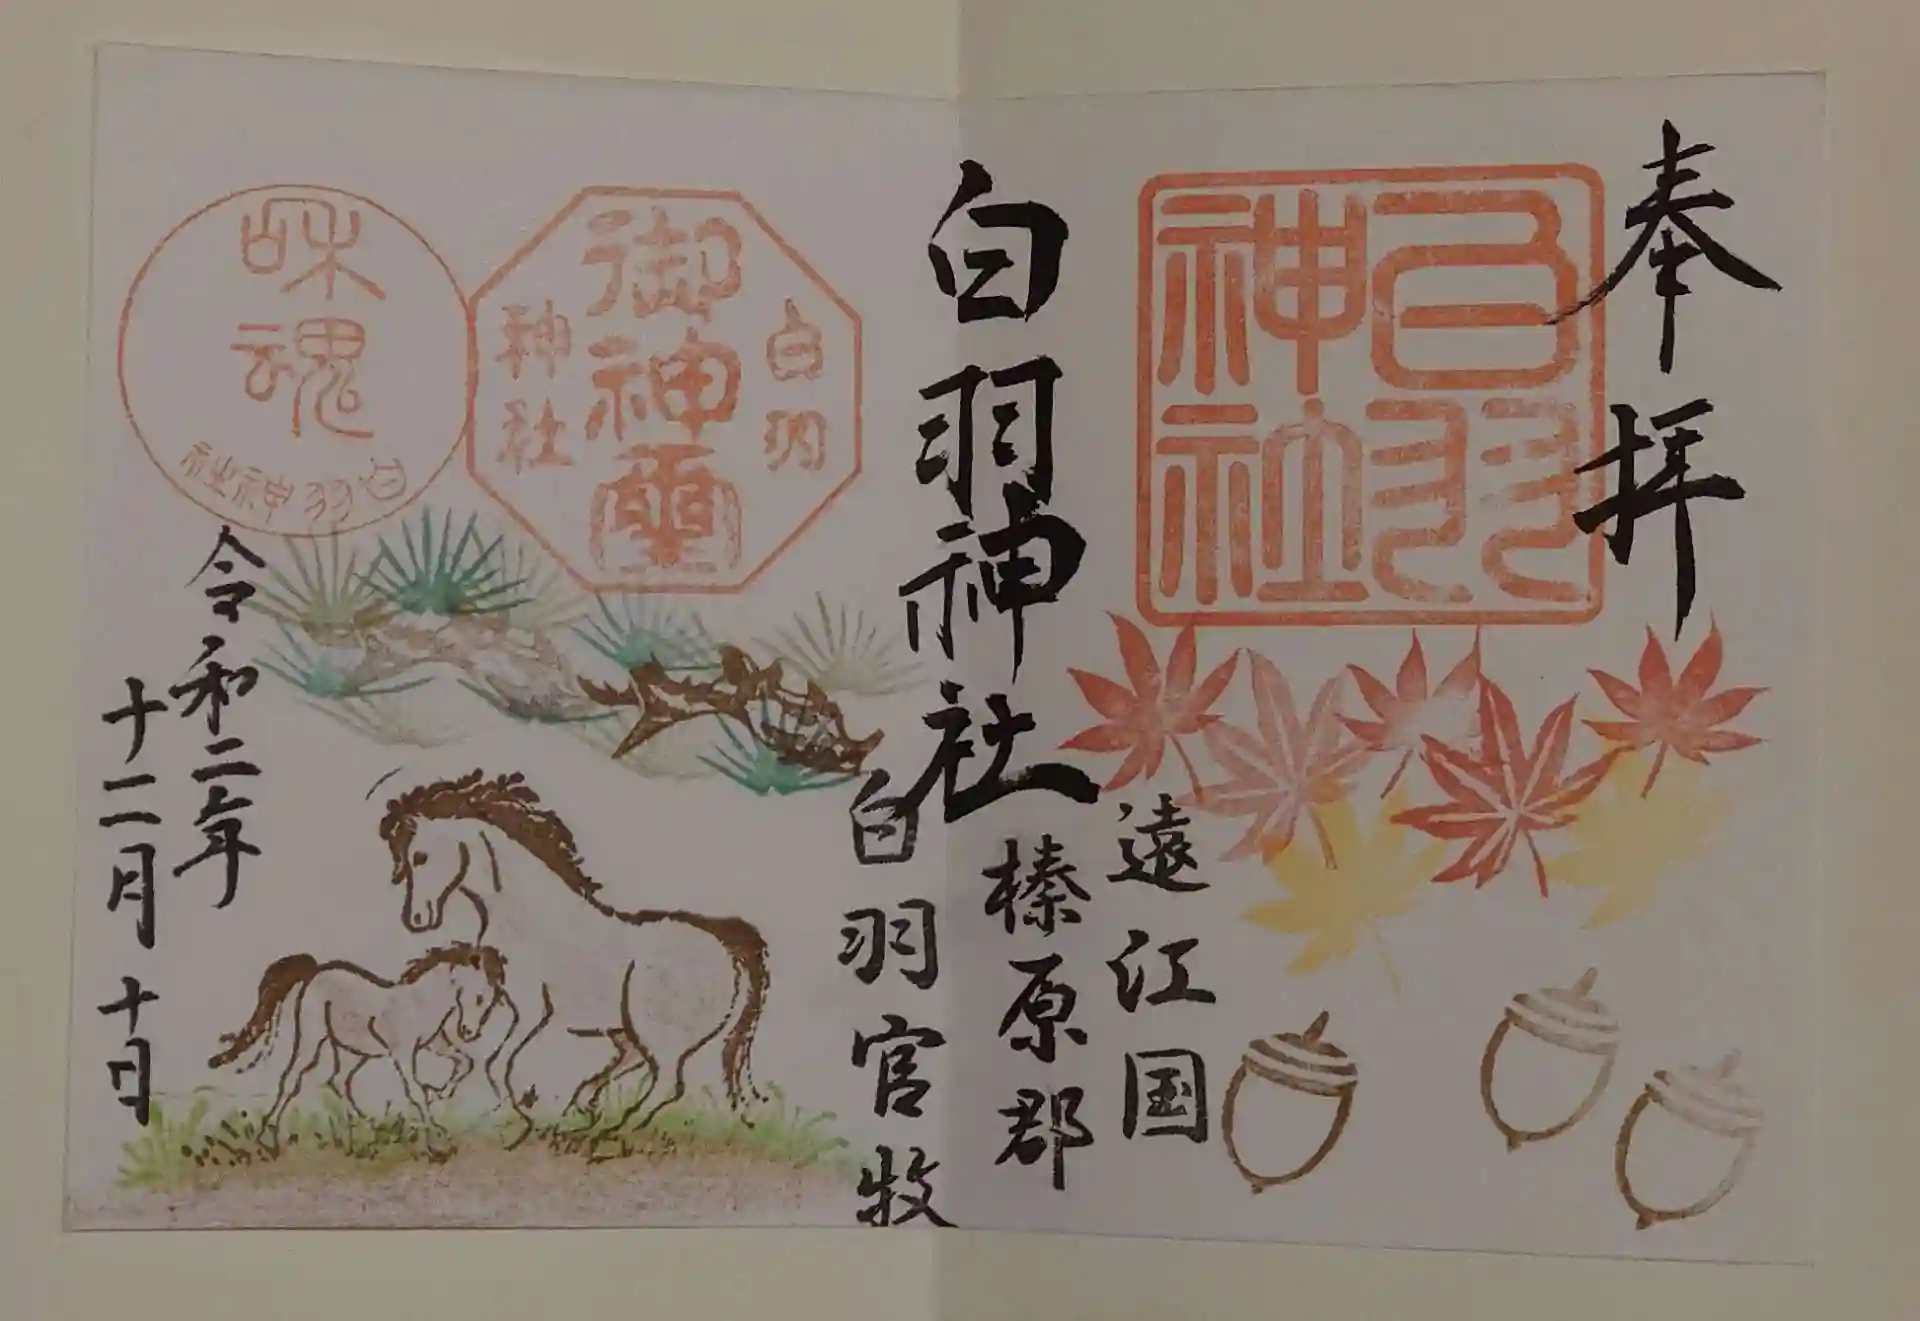 奉拝
白羽
神社
遠江国
榛原郡
白羽神社
白羽官牧
白羽
御神霊
神社
和魂
白羽神社
令和二年
十二月十日